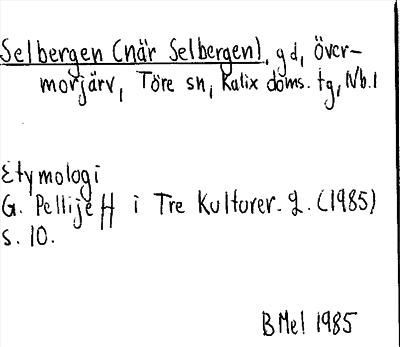 Selbergen (när Selbergen), gd, Över-
morjärv, Töre sn, Kalix doms. tg, Nb. l
Etymologi
G. Pellijeff i Tre Kulturer. 2. (1985)
s. 10.
B Mel 1985